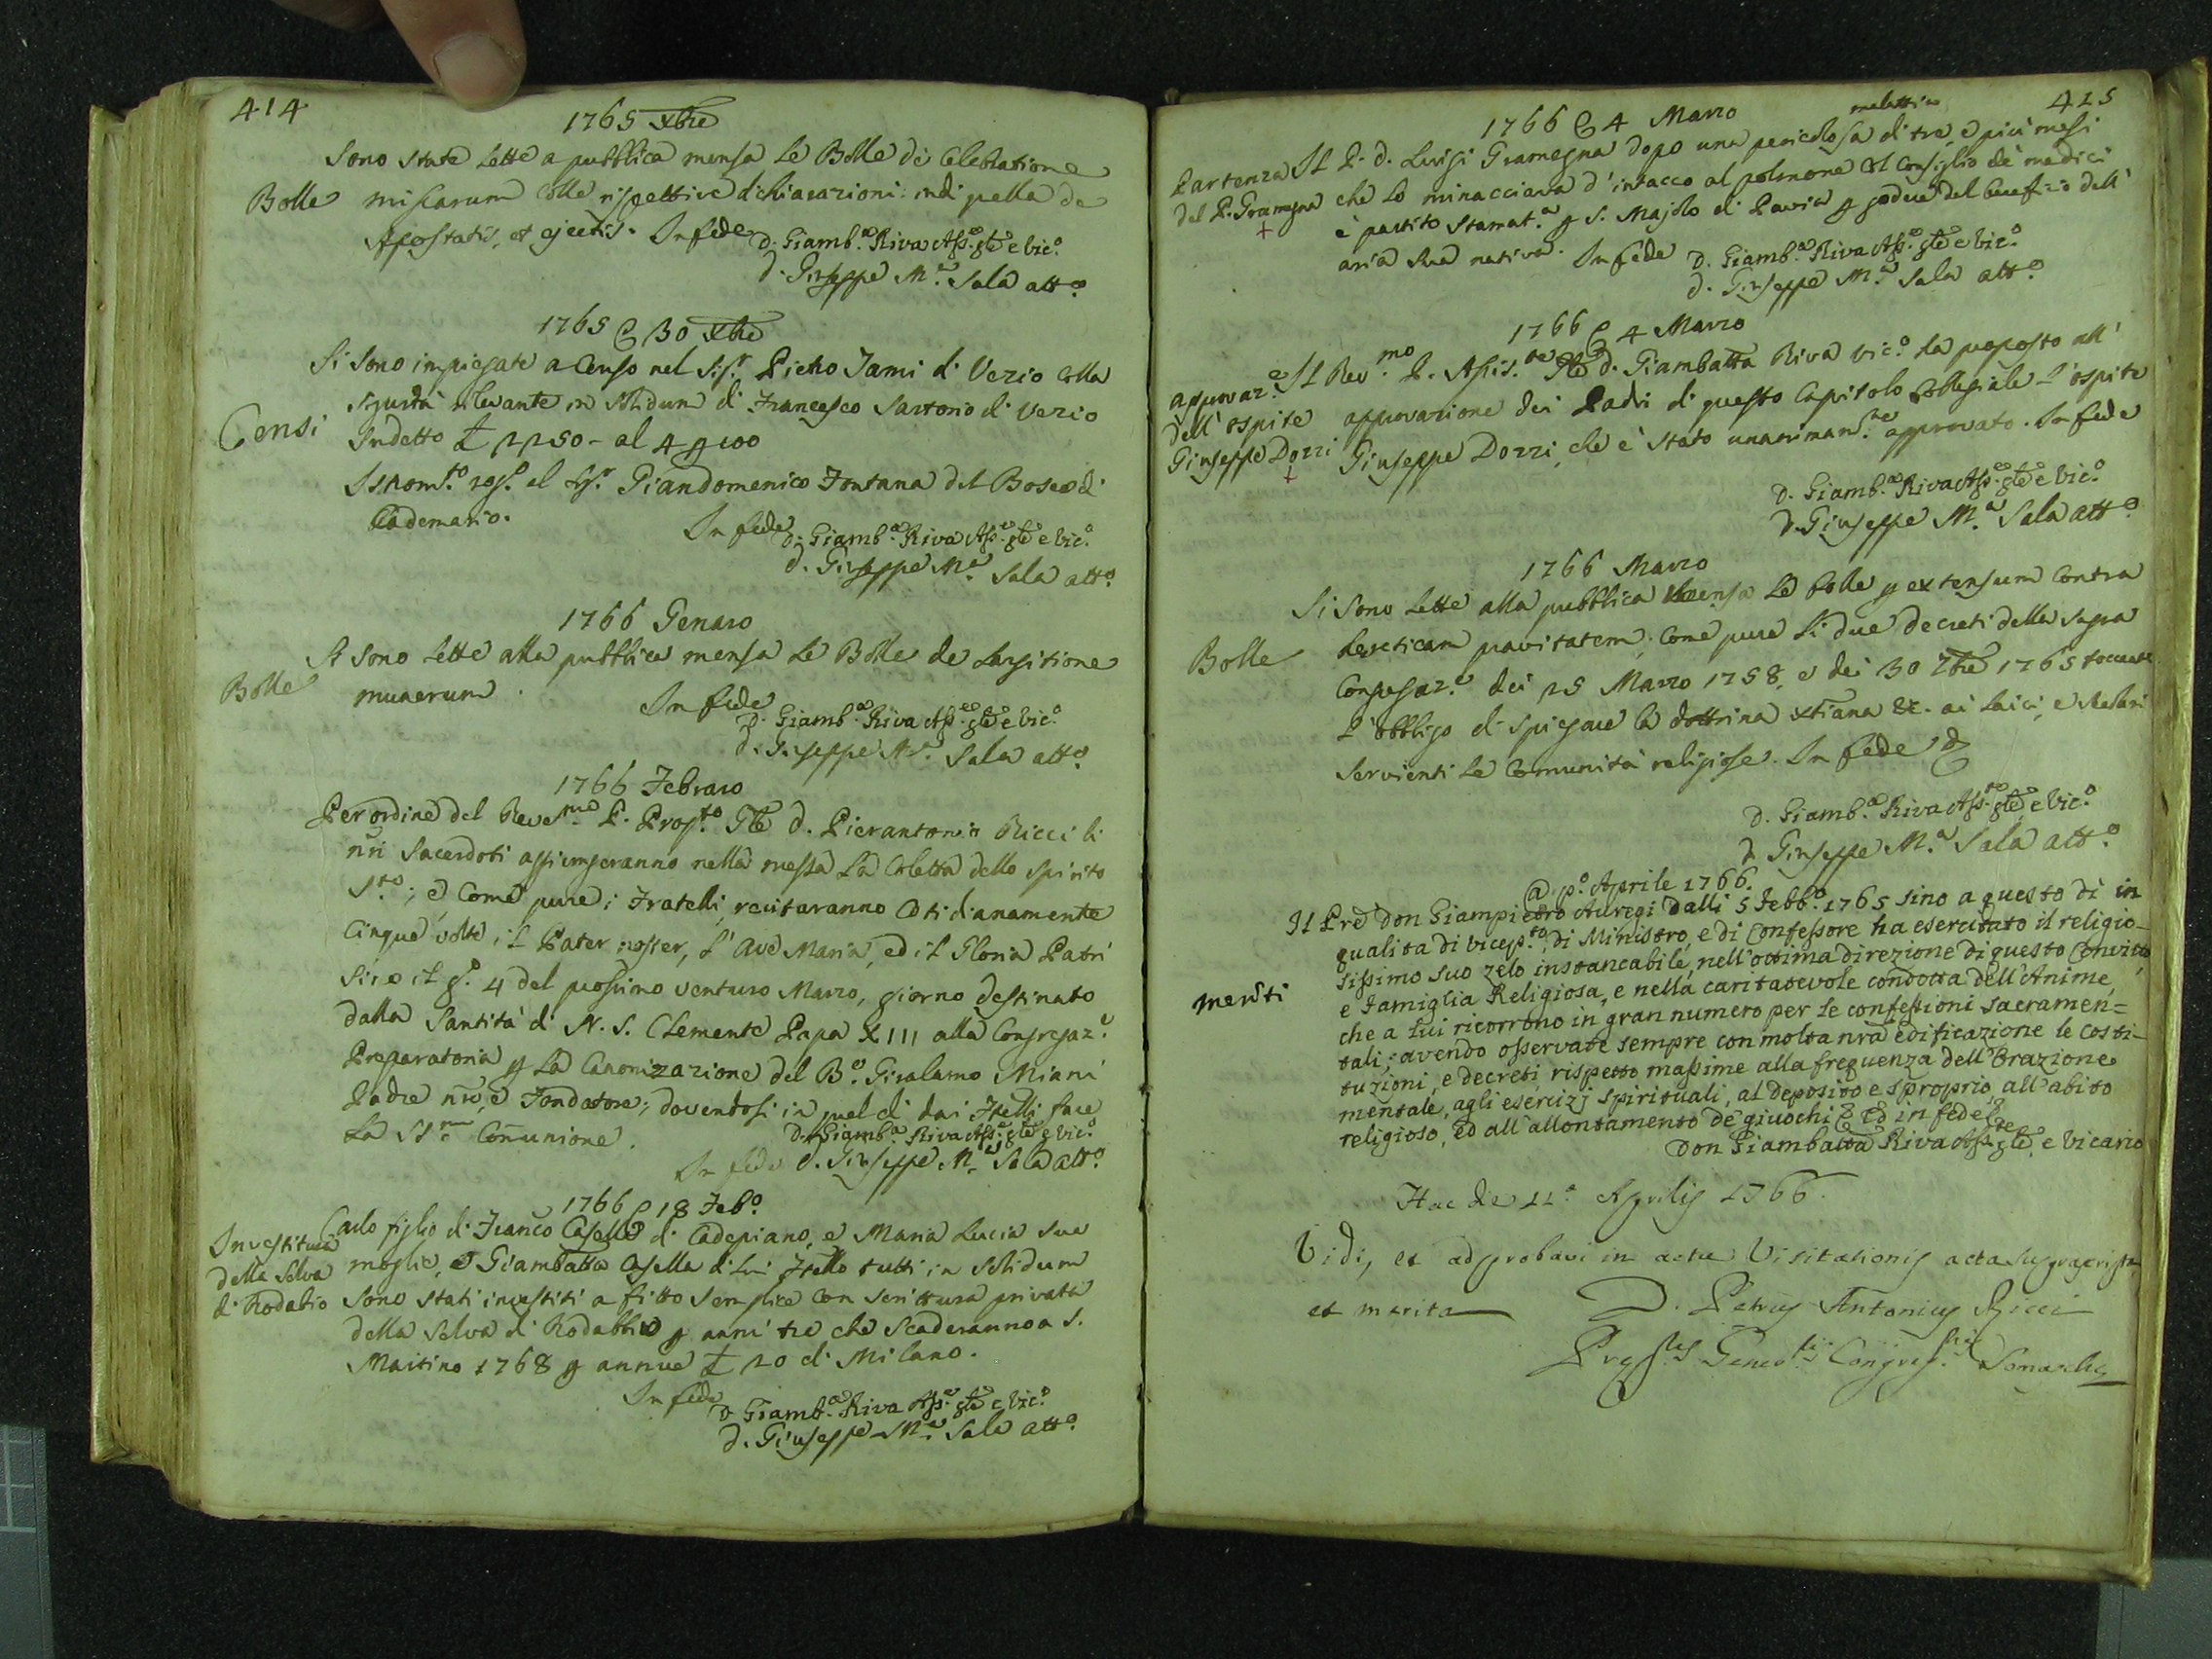 414
1765 Xbre
Sono state lette a pubblica mensa le Bolle de Celebratione
Bolle missarum colle rispettive dichiarazioni: indi quella de
Apostatis, et ejectis. In fede
D. Giamb.a Riva Ass.e gle e vic.o
d. Giuseppe M.a Sala att.o
1765 @ 30 Xbre
Si sono impiegate a Censo nel Sig.r Pietro Jami di Vezio colla
sigurtà rilevante in solidum di Francesco Sartorio di Vezio
Censi
Sudetto £ 1250 - al 4 p 100
Istrom.to rog.o el Sig.r Giandomenico Fontana del Bosco di
Cademario.
In fede
D. Giamb.a Riva Ass.e gle e vic.o
d. Giuseppe M.a Sala att.o
1766 Genaro
Si sono lette alla pubblica mensa le Bolle de largitione
Bolle munerum.
In fede
D. Giamb.a Riva Ass.e gle e vic.o
d. Giuseppe M.a Sala att.o
1766 Febraro
Per ordine del Reve.mo P. Prop.to Gle d. Pierantonio Ricci li
nri Sacerdoti aggiungeranno nella messa la Coletta dello Spirito
S.to; e come pure i Fratelli recitaranno cotidianamente
cinque volte il Pater noster, l'Ave Maria, ed il Gloria Patri
sino il g.o 4 del prossimo venturo Marzo, giorno destinato
dalla Santità di N. S. Clemente Papa XIII alla Congregaz.e
Preparatoria p la Canonizazione del B.o Girolamo Miani
Padre nro, e Fondatore; dovendosi in quel dì dai Fratelli fare
la SS.ma Comunione.
D. Giamb.a Riva Ass.e gle e vic.o
In fede d. Giuseppe M.a Sala att.o
1766 @ 18 Feb.o
Investitura Carlo figlio di Franco Casella di Cadepiano, e Maria Lucia sua
della Selva moglie, e Giambatta Casella di lui fratello tutti in solidum
di Rodabio sono stati investiti a fitto semplice con scrittura privata
della selva di Rodabbio p anni tre che scaderanno a S.
Martino 1768 p annue £ 20 di Milano.
In fede
D. Giamb.a Riva Ass.e gle e vic.o
d. Giuseppe M.a Sala att.o
415
1766 @ 4 Marzo
malattia
Partenza Il P. d. Luigi Gramegna dopo una pericolosa di tre, e più mesi
del P. Gramegna che lo minacciava d'intacco al polmone col consiglio de' medici
è partito stamat.a p S. Majolo di Pavia p godere del beneficio dell'
aria sua nativa. In fede
D. Giamb.a Riva Ass.e gle e vic.o
d. Giuseppe M.a Sala att.o
1766 @ 4 Marzo
approvaz.e Il Rev.mo P. Assis.te Gle d. Giambatta Riva vic.o ha proposto all'
dell'ospite approvazione dei Padri di questo Capitolo Collegiale l'ospite
Giuseppe Dozzi Giuseppe Dozzi, che è stato unanimam.te approvato. In fede
D. Giamb.a Riva Ass.e gle e vic.o
D. Giuseppe M.a Sala att.o
1766 Marzo
Si sono lette alla pubblica mensa le bolle p extensum contra
Bolle
hereticam pravitatem; come pure li due decreti della sagra
Congregaz.e dei 25 Marzo 1758, e dei 30 7bre 1765 toccante
l'obbligo di spiegare la dottrina Xtiana &c. ai laici, e secolari
servienti le comunità religiose. In fede &
D. Giamb.a Riva Ass.te gle e vic.o
D. Giuseppe M.a Sala att.o
@ p.o Aprile 1766.
Il Pre Don Giampietro Auregi dalli 5 Febb.o 1765 sino a questo dì in
qualita di vicep.to, di Ministro, e di Confessore ha esercitato il religio-
sissimo suo zelo instancabile, nell'ottima direzione di questo Convitto,
meriti
e famiglia Religiosa, e nella caritatevole condotta dell'Anime,
che a lui ricorrono in gran numero per le confessioni sacramen=
tali; avendo osservate sempre con molta nra edificazione le costi-
tuzioni, e decreti rispetto massime alla frequenza dell'Orazione
mentale, agli esercizj spirituali, al deposito e sproprio, all'abito
religioso, ed all'allontamento de' giuochi & Ed in fede &
Don Giambatta Riva Ass.te gle e vicario
Hac die 11.a Aprilis 1766.
Vidi, et adprobavi in actu Visitationis acta suprascripta,
et merita
D. Petrus Antonius Ricci
Prep.tus Gener.lis Congreg.nis Somaschæ